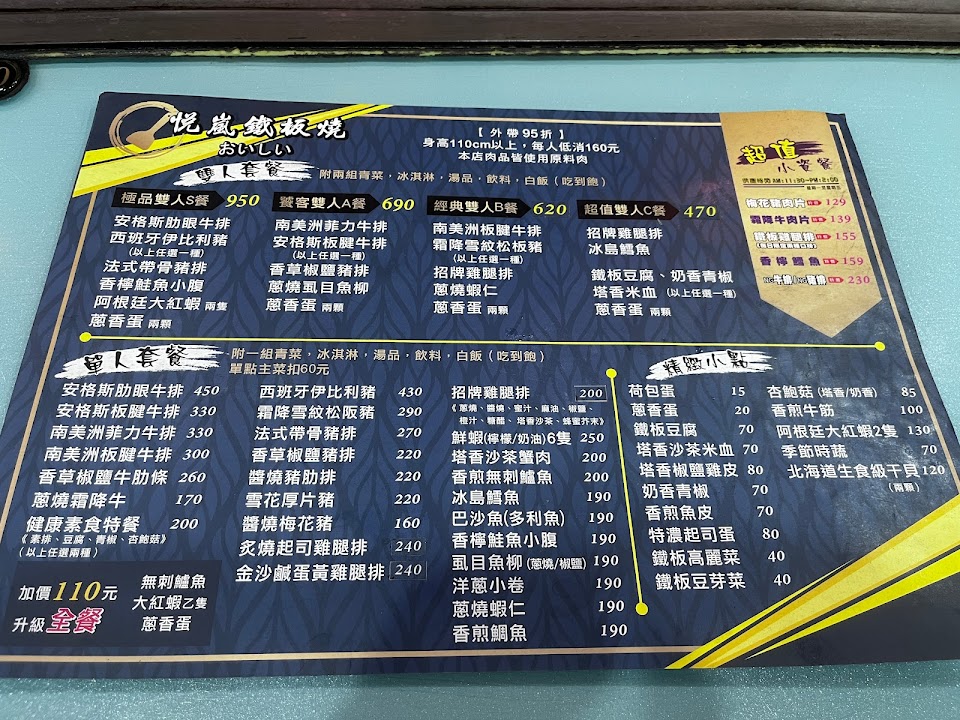 悅嵐鐵板燒
おいしい
【外帶95折】
身高110cm以上，每人低消160元
本店肉品皆使用原料肉
雙人套餐 附兩組青菜，冰淇淋，湯品，飲料，白飯（吃到飽）
極品雙人S餐 950
安格斯肋眼牛排
西班牙伊比利豬
（以上任選一種）
法式帶骨豬排
香檸鮭魚小腹
阿根廷大紅蝦 兩隻
蔥香蛋 兩顆
饕客雙人A餐 690
南美洲菲力牛排
安格斯板腱牛排
（以上任選一種）
香草椒鹽豬排
蔥燒虱目魚柳
蔥香蛋 兩顆
經典雙人B餐 620
南美洲板腱牛排
霜降雪紋松板豬
（以上任選一種）
招牌雞腿排
蔥燒蝦仁
蔥香蛋 兩顆
超值雙人C餐 470
招牌雞腿排
冰島鱈魚
鐵板豆腐、奶香青椒
塔香米血（以上任選一種）
蔥香蛋 兩顆
超值
小資餐
供應時間AM:11:30~PM:2:00
梅花豬肉片 129
霜降牛肉片 139
鐵板雞腿排 155
香檸鱈魚 159
230
單人套餐 附一組青菜，冰淇淋，湯品，飲料，白飯（吃到飽）
單點主菜扣60元
安格斯肋眼牛排 450
安格斯板腱牛排 330
南美洲菲力牛排 330
南美洲板腱牛排 300
香草椒鹽牛肋條 260
蔥燒霜降牛 170
健康素食特餐 200
《素排、豆腐、青椒、杏鮑菇》
（以上任選兩種）
加價110元
升級全餐
無刺鱸魚
大紅蝦乙隻
蔥香蛋
西班牙伊比利豬 430
霜降雪紋松阪豬 290
法式帶骨豬排 270
香草椒鹽豬排 220
醬燒豬肋排 220
雪花厚片豬 220
醬燒梅花豬 160
炙燒起司雞腿排 240
金沙鹹蛋黃雞腿排 240
招牌雞腿排 200
《蔥燒、醬燒、蜜汁、麻油、椒鹽、
橙汁、糖醋、塔香沙茶、蜂蜜芥末》
鮮蝦(檸檬/奶油)6隻 250
塔香沙茶蟹肉 200
香煎無刺鱸魚 200
冰島鱈魚 190
巴沙魚(多利魚) 190
香檸鮭魚小腹 190
虱目魚柳(蔥燒/椒鹽) 190
洋蔥小卷 190
蔥燒蝦仁 190
香煎鯛魚 190
精緻小點
荷包蛋 15
蔥香蛋 20
鐵板豆腐 70
塔香沙茶米血 70
塔香椒鹽雞皮 80
奶香青椒 70
香煎魚皮 70
特濃起司蛋 40
鐵板高麗菜 40
鐵板豆芽菜 40
杏鮑菇(塔香/奶香) 85
香煎牛筋 100
阿根廷大紅蝦2隻 130
季節時蔬 70
北海道生食級干貝 120
(兩顆)